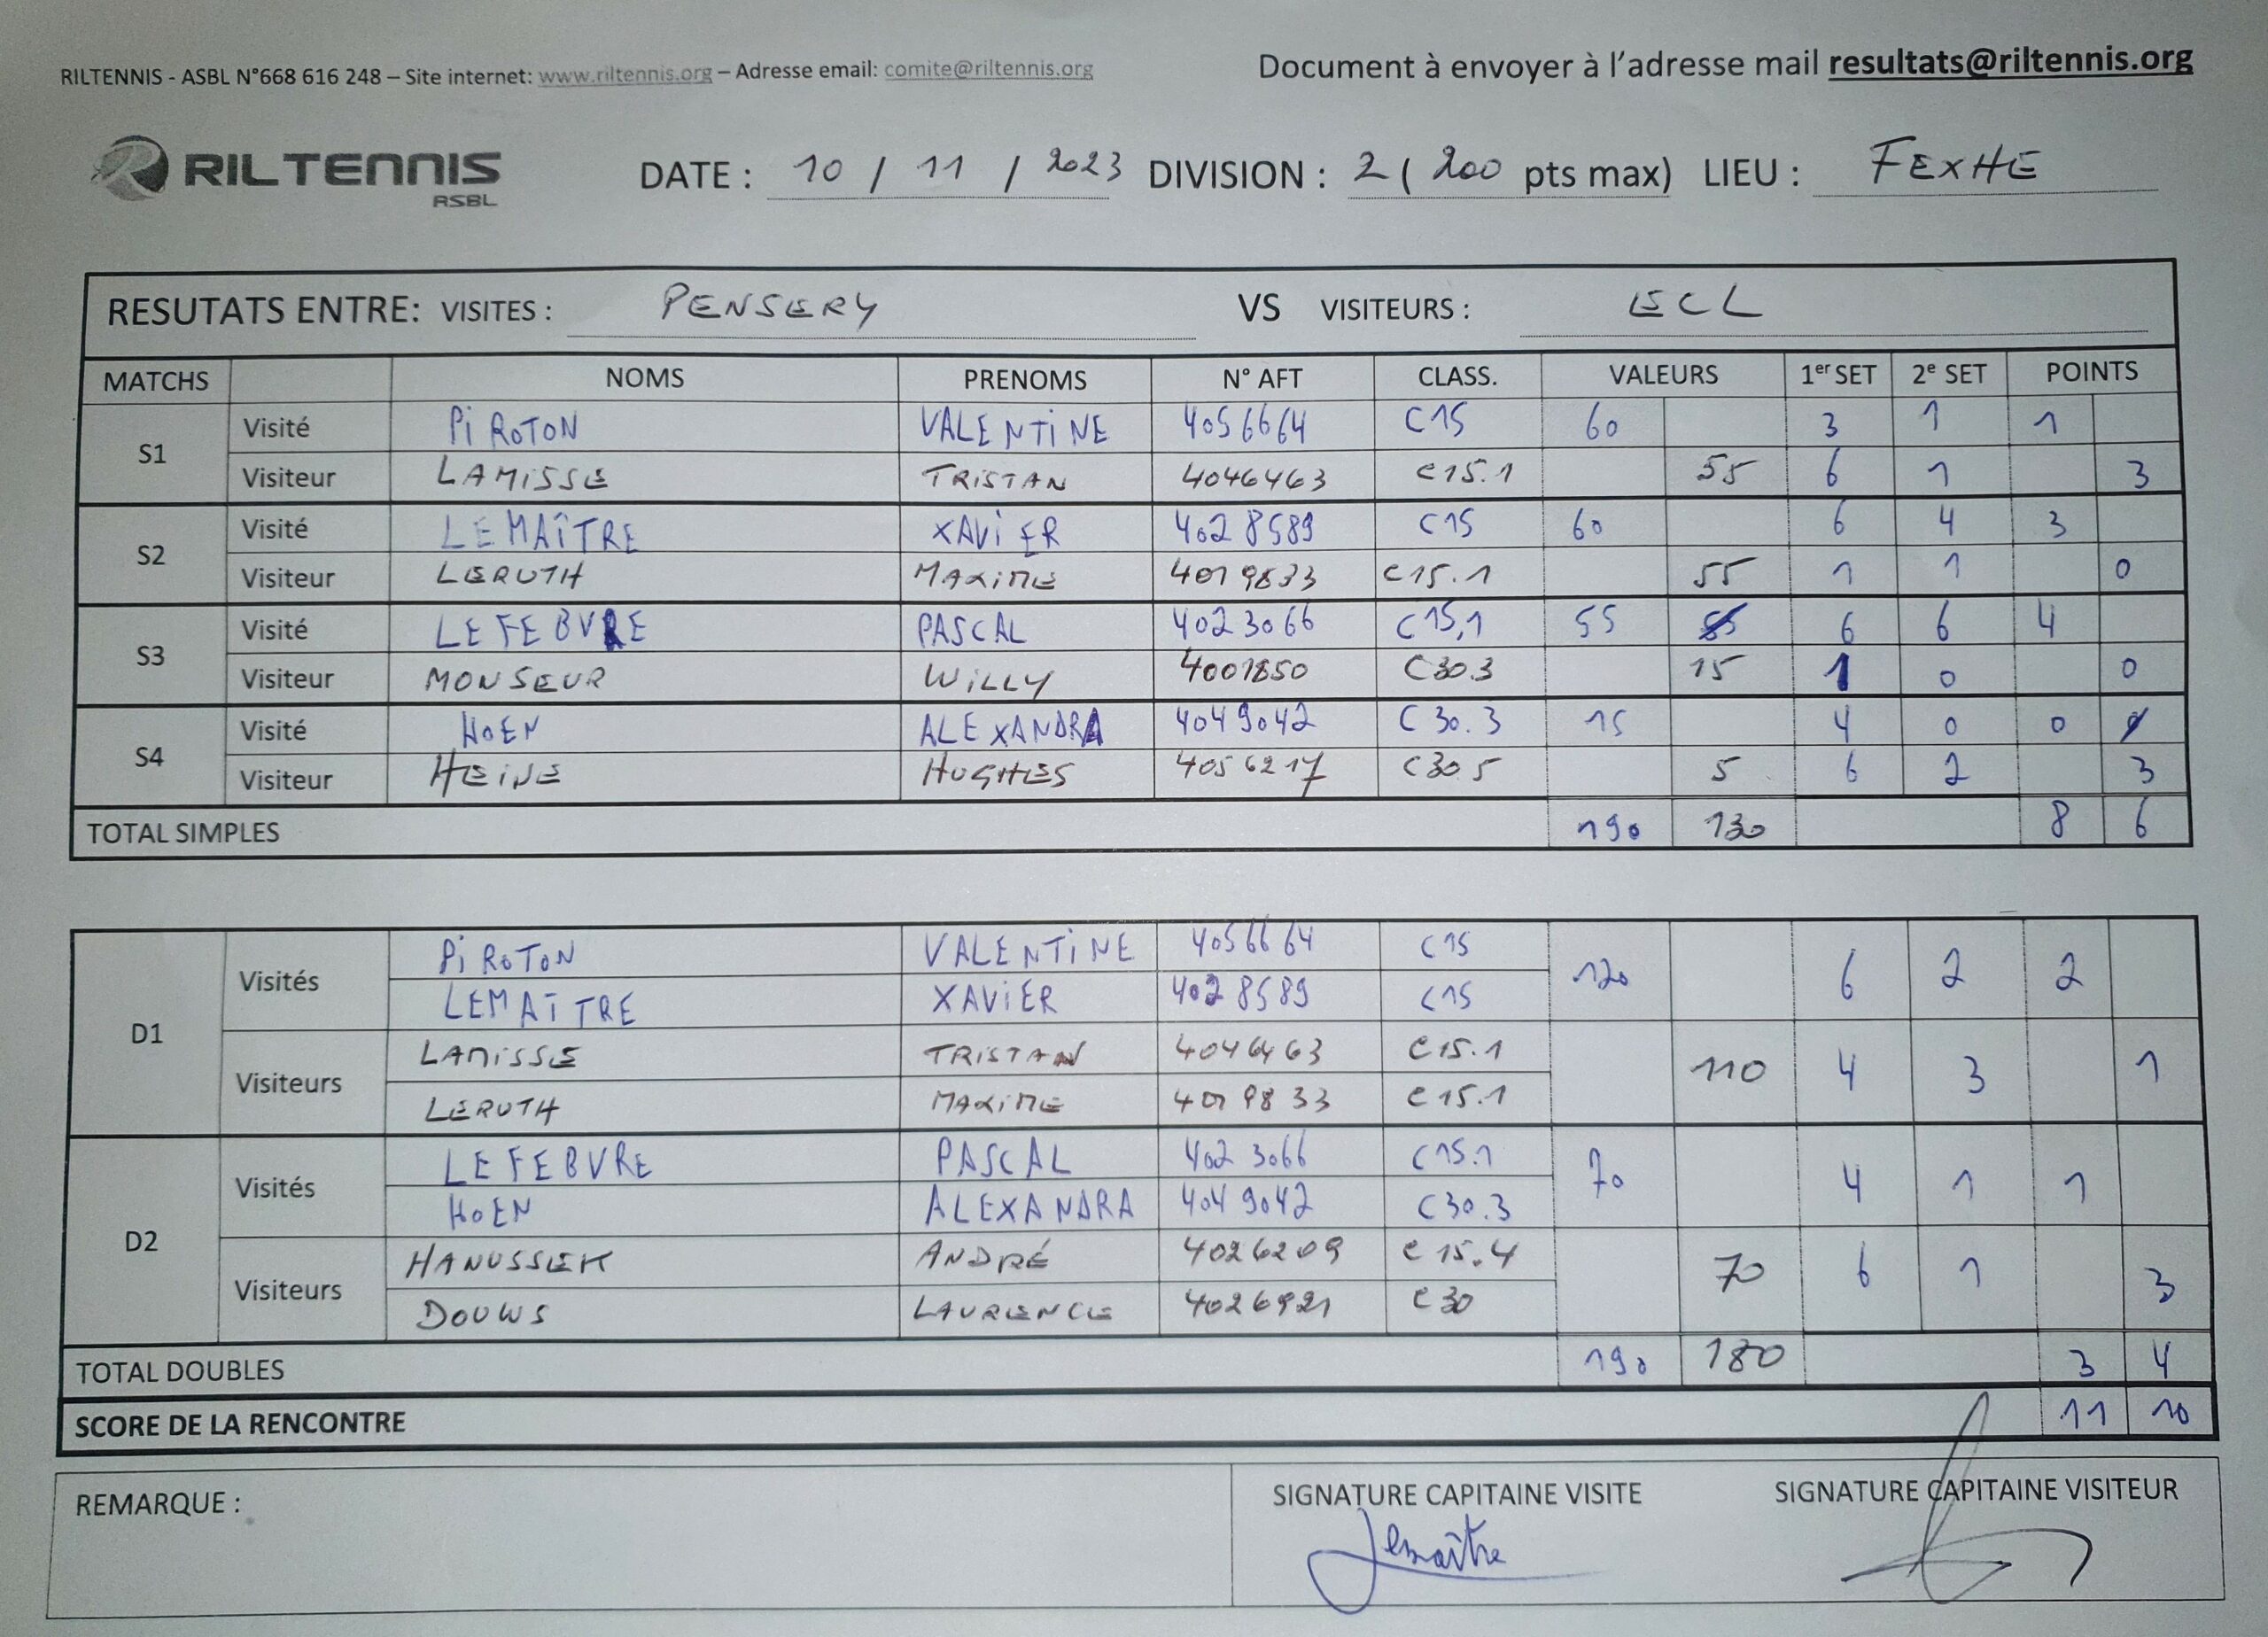 RILTENNIS - ASBL N°668 616 248 – Site internet: www.riltennis.org – Adresse email: comite@riltennis.org
Document à envoyer à l'adresse mail resultats@riltennis.org
RILTENNIS ASBL
DATE : 10 / 11 / 2023 DIVISION : 2 ( 200 pts max) LIEU : FEXHE
RESUTATS ENTRE: VISITES : PENSERY VS VISITEURS : ECL
MATCHS NOMS PRENOMS N° AFT CLASS. VALEURS 1er SET 2e SET POINTS
S1
Visité PiROTON VALENTiNE 4056664 C15 60 3 1 1
Visiteur LAMISSE TRISTAN 4046463 C15.1 55 6 1 3
S2
Visité LEMAÎTRE XAViER 4028589 C15 60 6 4 3
Visiteur LERUTH MAXIME 4019833 C15.1 55 1 1 0
S3
Visité LEFEBVRE PASCAL 4023066 C15,1 55 6 6 4
Visiteur MONSEUR WiLLY 4001850 C30.3 15 1 0 0
S4
Visité HOEN ALEXANDRA 4049042 C30.3 15 4 0 0
Visiteur HEINE HUGHES 4056217 C30.5 5 6 2 3
TOTAL SIMPLES 190 130 8 6
D1
Visités PiROTON VALENTiNE 4056664 C15 120 6 2 2
LEMAÎTRE XAViER 4028589 C15
Visiteurs LAMISSE TRISTAN 4046463 C15.1 110 4 3 1
LERUTH MAXIME 4019833 C15.1
D2
Visités LEFEBVRE PASCAL 4023066 C15.1 70 4 1 1
HOEN ALEXANDRA 4049042 C30.3
Visiteurs HANUSSEK ANDRÉ 4026209 C15.4 70 6 1 3
DOUWS LAURENCE 4026921 C30
TOTAL DOUBLES 190 180 3 4
SCORE DE LA RENCONTRE 11 10
REMARQUE :
SIGNATURE CAPITAINE VISITE SIGNATURE CAPITAINE VISITEUR
Lemaître